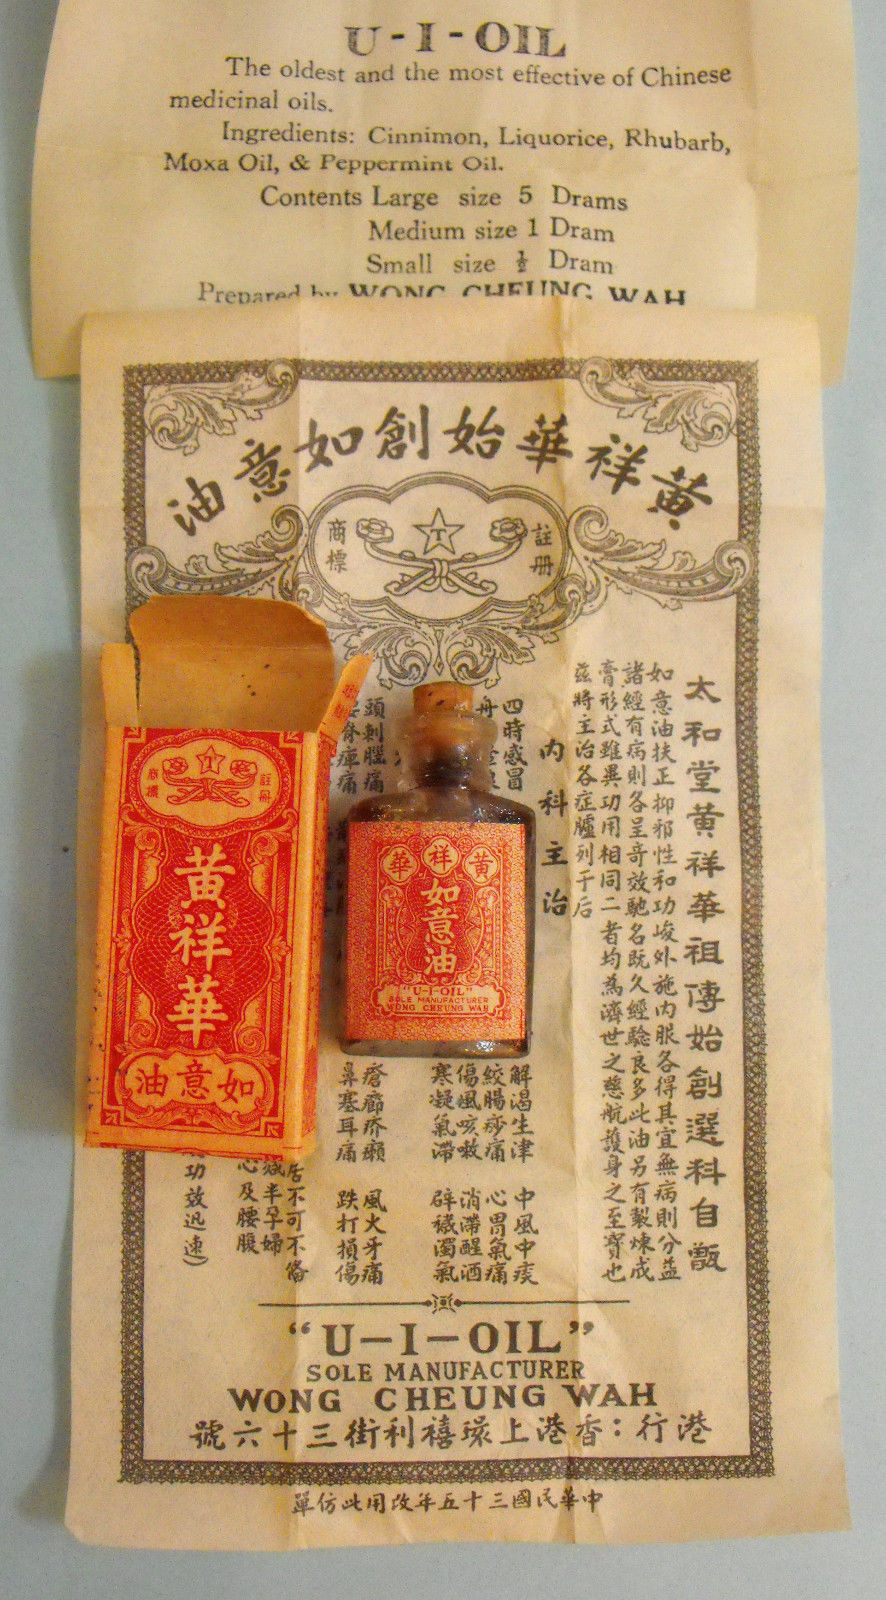 U-I-OIL
The oldest and the most effective of Chinese
medicinal oils.
Ingredients: Cinnimon, Liquorice, Rhubarb,
Moxa Oil, & Peppermint Oil.
Contents Large size 5 Drams
Medium size 1 Dram
Small size ½ Dram
Prepared by WONG CHEUNG WAH
黃祥華始創如意油
註冊
商標
T
太和堂黃祥華祖傳始創選科自甑
如意油扶正抑邪性和功峻外施內服各得其宜無病則分益
諸經有病則各呈奇效馳名既久經驗良多此油另有製煉成
膏形式雖異功用相同二者均為濟世之慈航護身之至寶也
茲將主治各症臚列于后
內科主治
四時感冒
解渴生津 中風中痰
絞腸痧痛 心胃氣痛
傷風咳嗽 消滯醒酒
寒凝氣滯 辟穢濁氣
頭刺腦痛
瘡癤疥癩 風火牙痛
脊痛
鼻塞耳痛 跌打損傷
居不可不備
半孕婦
心及腰腹
功效迅速)
"U-I-OIL"
SOLE MANUFACTURER
WONG CHEUNG WAH
港行：香港上環禧利街三十六號
中華民國三十五年改用此仿單
註冊
商標
T
黃祥華
如意油
黃祥華
如意油
"U-I-OIL"
SOLE MANUFACTURER
WONG CHEUNG WAH